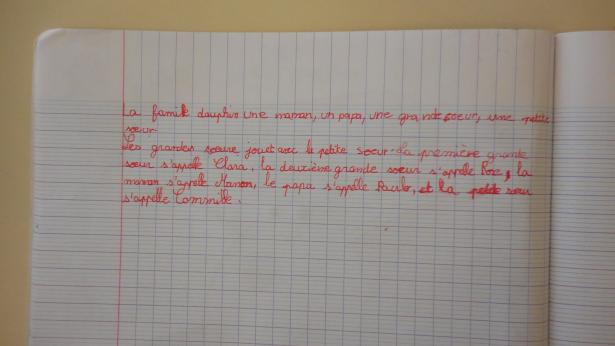 La famile dauphin une maman, un papa, une grande soeur, une petite
soeur.
Les grandes soeure jouet avec le petite soeur. La première grante
soeur s'appelle Clara, la deuxième grande soeur s'appelle Rose, la
maman s'appelle Manon, le papa s'appelle Paulo, et la petite soeur
s'appelle Commille.